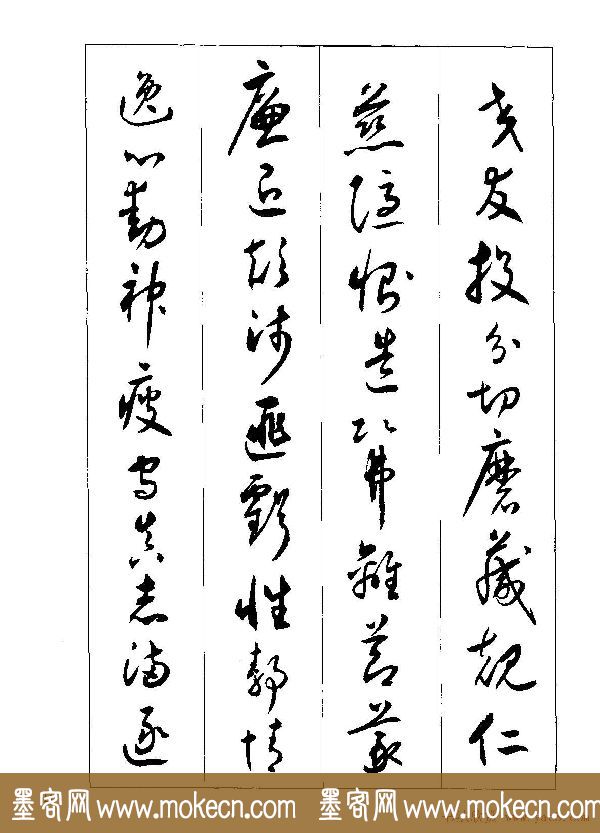 交友投分切磨箴規仁
慈隱惻造次弗離節義
廉退顛沛匪虧性靜情
逸心動神疲守真志滿逐
墨客网 www.mokecn.com 墨客网 www.mokecn.com